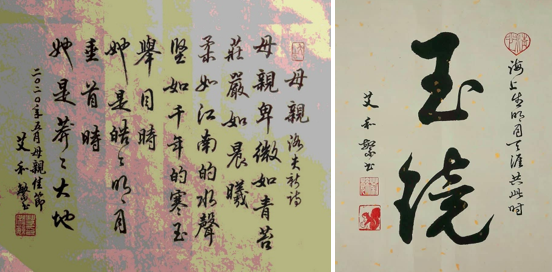 母親 洛夫新詩
母親卑微如青苔
莊嚴如晨曦
柔如江南的水聲
堅如千年的寒玉
舉目時
她是皓〻明月
垂首時
她是莽〻大地
二〇二〇年五月母親佳節
艾和 書
海上生明月天涯共此時
玉鏡
艾和 書